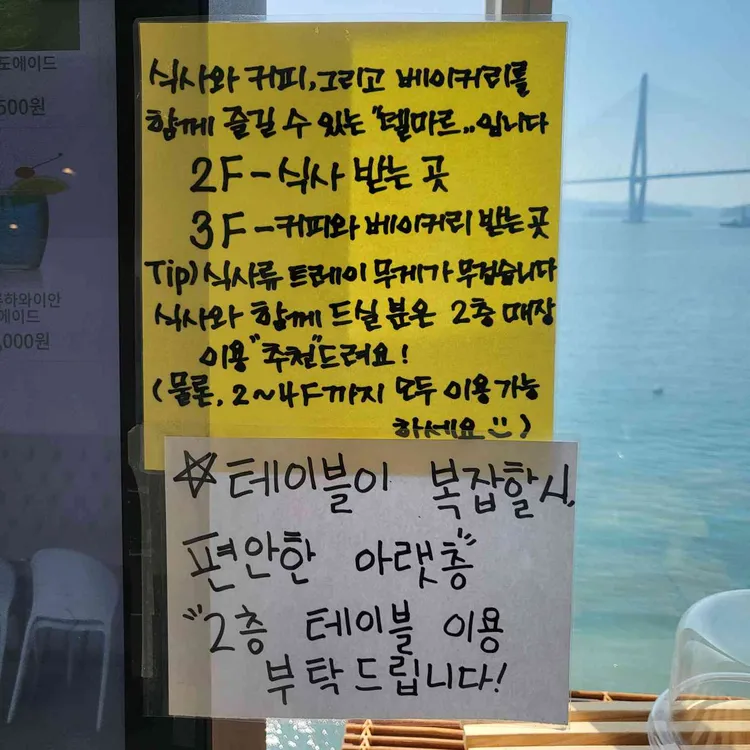 도에이드
500원
하와이안
에이드
,000원
식사와 커피,그리고 베이커리를
함께 즐길 수 있는 "텔마르"입니다
2F-식사 받는 곳
3F-커피와 베이커리 받는 곳
Tip) 식사류 트레이 무게가 무겁습니다
식사와 함께 드실 분은 2층 매장
이용"추천"드려요!
(물론, 2~4F까지 모두 이용가능
하세요 :))
☆테이블이 복잡할시,
편안한 아랫층"
"2층 테이블 이용
부탁드립니다!